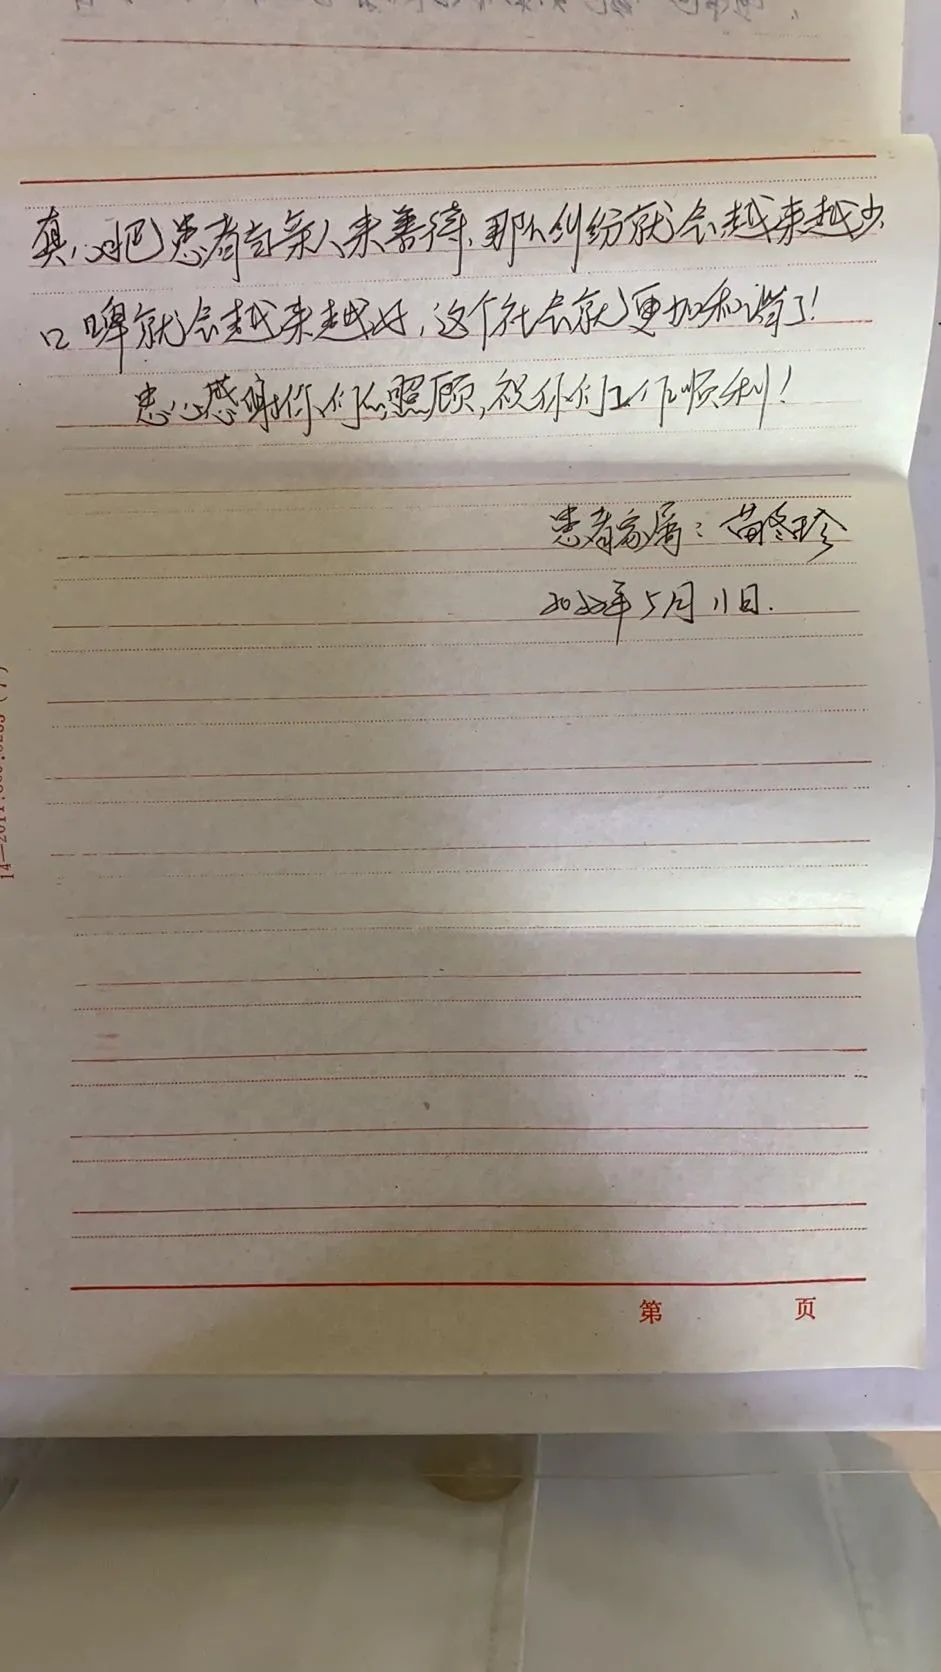 真心把患者当亲人来善待,那么纠纷就会越来越少,
口啤就会越来越好,这个社会就更加和谐了!
忠心感谢你们的照顾,祝你们工作顺利!
患者家属:苗冬珍
2022年5月11日.
第 页